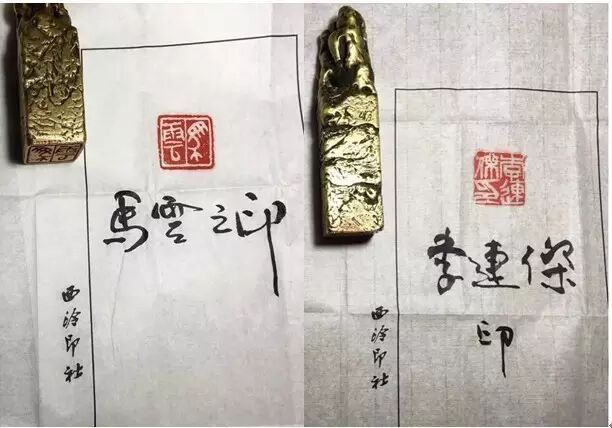 馬雲之印
西泠印社
李連傑印
李連傑
印
西泠印社